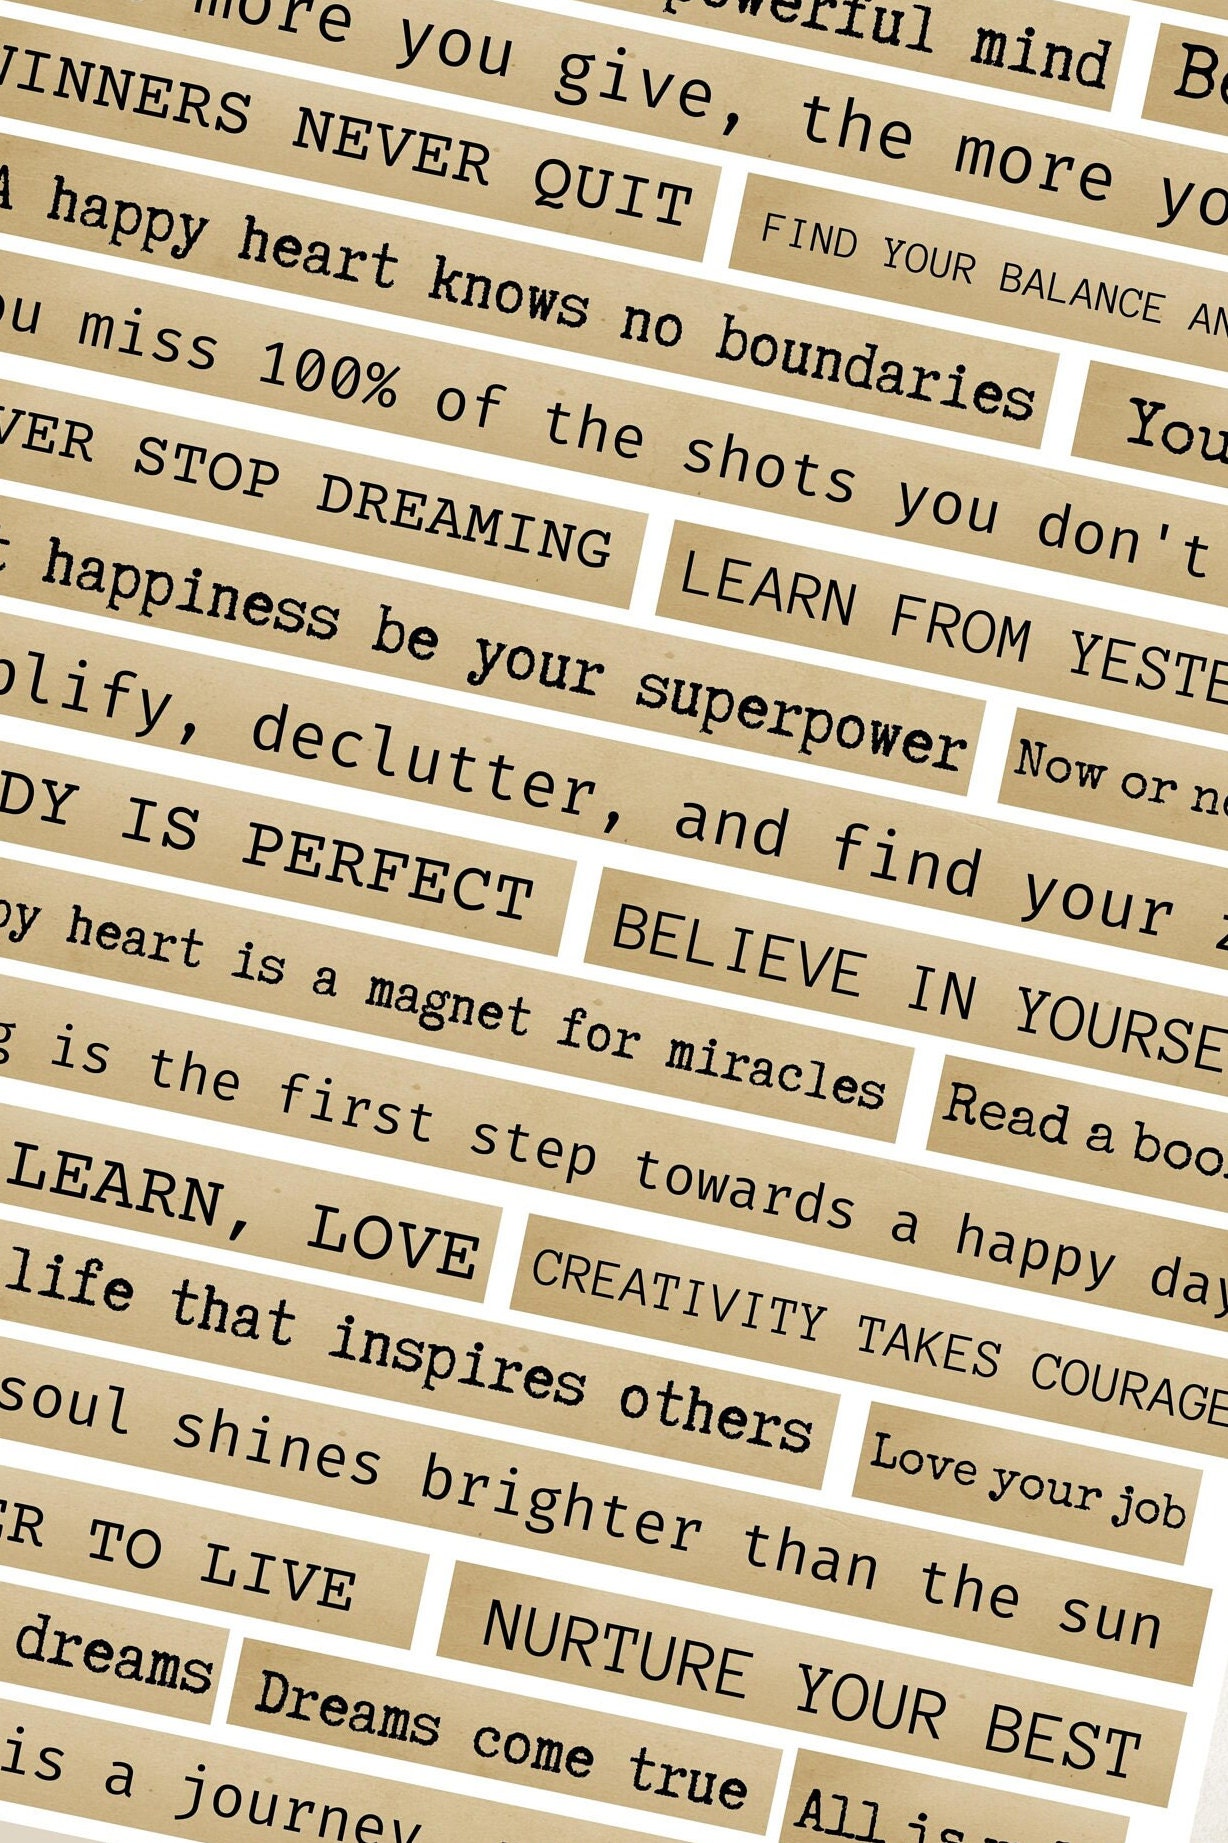 powerful mind
more you give, the more
WINNERS NEVER QUIT
FIND YOUR BALANCE
A happy heart knows no boundaries
You
miss 100% of the shots you don't
STOP DREAMING
LEARN FROM
happiness be your superpower
Now or
declutter, and find your
IS PERFECT
BELIEVE IN
heart is a magnet for miracles
Read a
is the first step towards a happy day
LEARN, LOVE
CREATIVITY TAKES COURAGE
life that inspires others
Love your job
soul shines brighter than the sun
TO LIVE
NURTURE YOUR BEST
dreams
Dreams come true
is a journey
All is